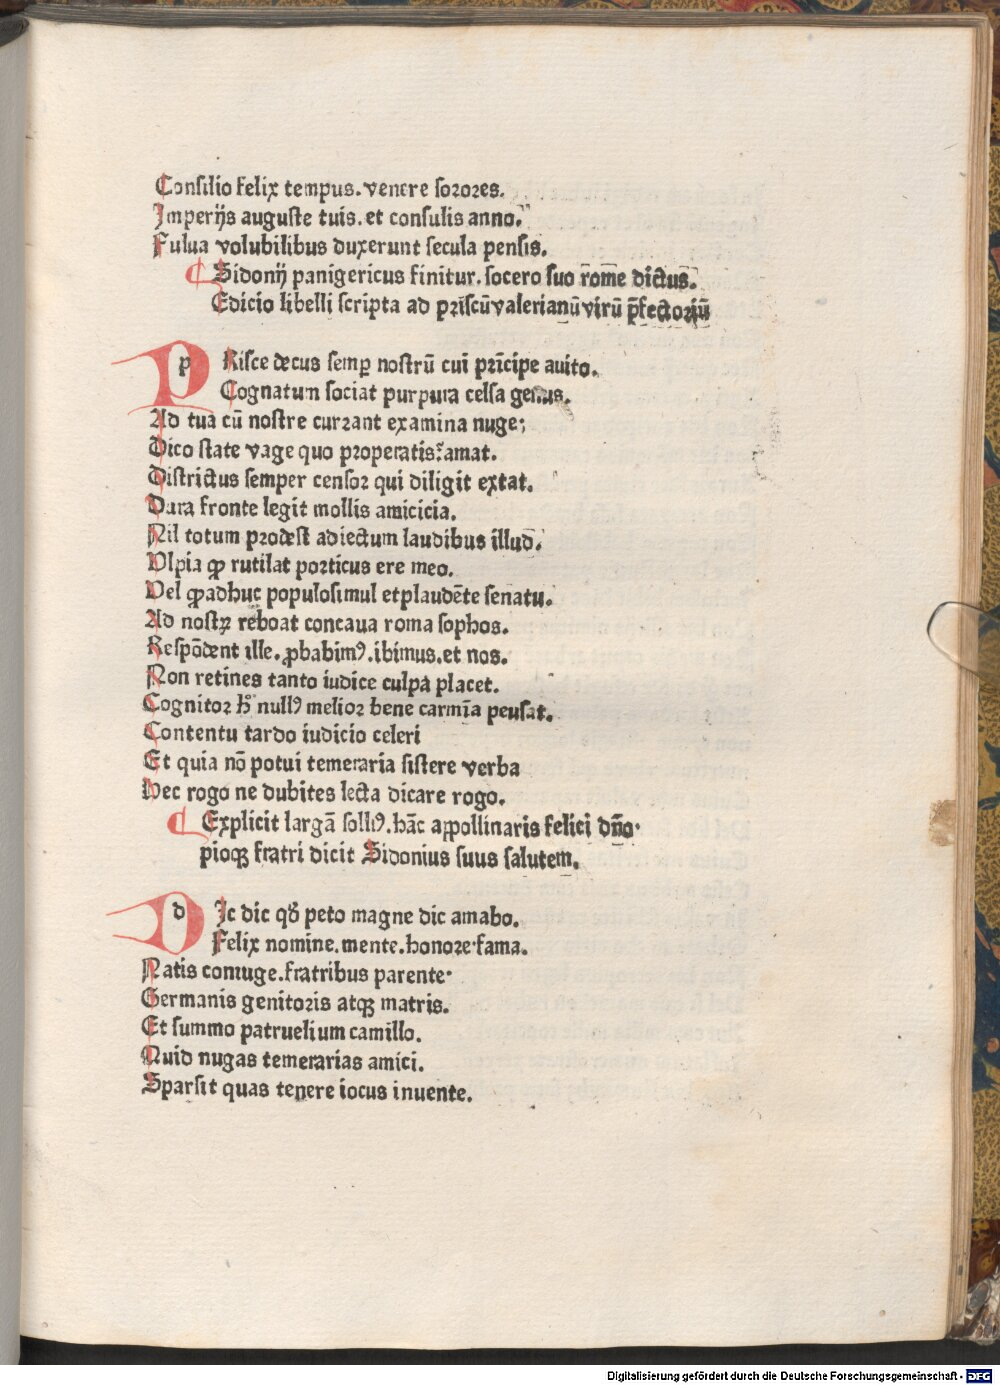 Consilio felix tempus. venere sorores.
Imperijs auguste tuis. et consulis anno.
Fulua volubilibus duxerunt secula pensis.
Sidonij panigericus finitur. socero suo rome dictus.
Edicio libelli scripta ad priscū valerianū virū p̄fectoriū
p RIsce decus semꝑ nostrū cui prīcipe auito.
Cognatum sociat purpura celsa genus.
Ad tua cū nostre currant examina nuge;
Dico state vage quo properatis? amat.
Districtus semper censor qui diligit extat.
Dura fronte legit mollis amicicia.
Nil totum prodest adiectum laudibus illud.
Vlpia qꝫ rutilat porticus ere meo.
Vel qꝫ adhuc populo simul et plaudēte senatu.
Ad nostꝝ reboat concaua roma sophos.
Respōdent ille. ꝓbabimꝰ. ibimus. et nos.
Non retines tanto iudice culpa placet.
Cognitor hͦ nullꝰ melior bene carmīa pensat.
Contentu tardo iudicio celeri
Et quia nō potui temeraria sistere verba
Nec rogo ne dubites lecta dicare rogo.
Explicit largā sollꝰ. hāc appollinaris felici dn̄o.
pioqꝫ fratri dicit Sidonius suus salutem.
d Ic dic qđ peto magne dic amabo.
Felix nomine. mente. honore. fama.
Natis coniuge. fratribus parente.
Germanis genitoris atqꝫ matris.
Et summo patruelium camillo.
Quid nugas temerarias amici.
Sparsit quas tenere iocus inuente.
Digitalisierung gefördert durch die Deutsche Forschungsgemeinschaft - DFG